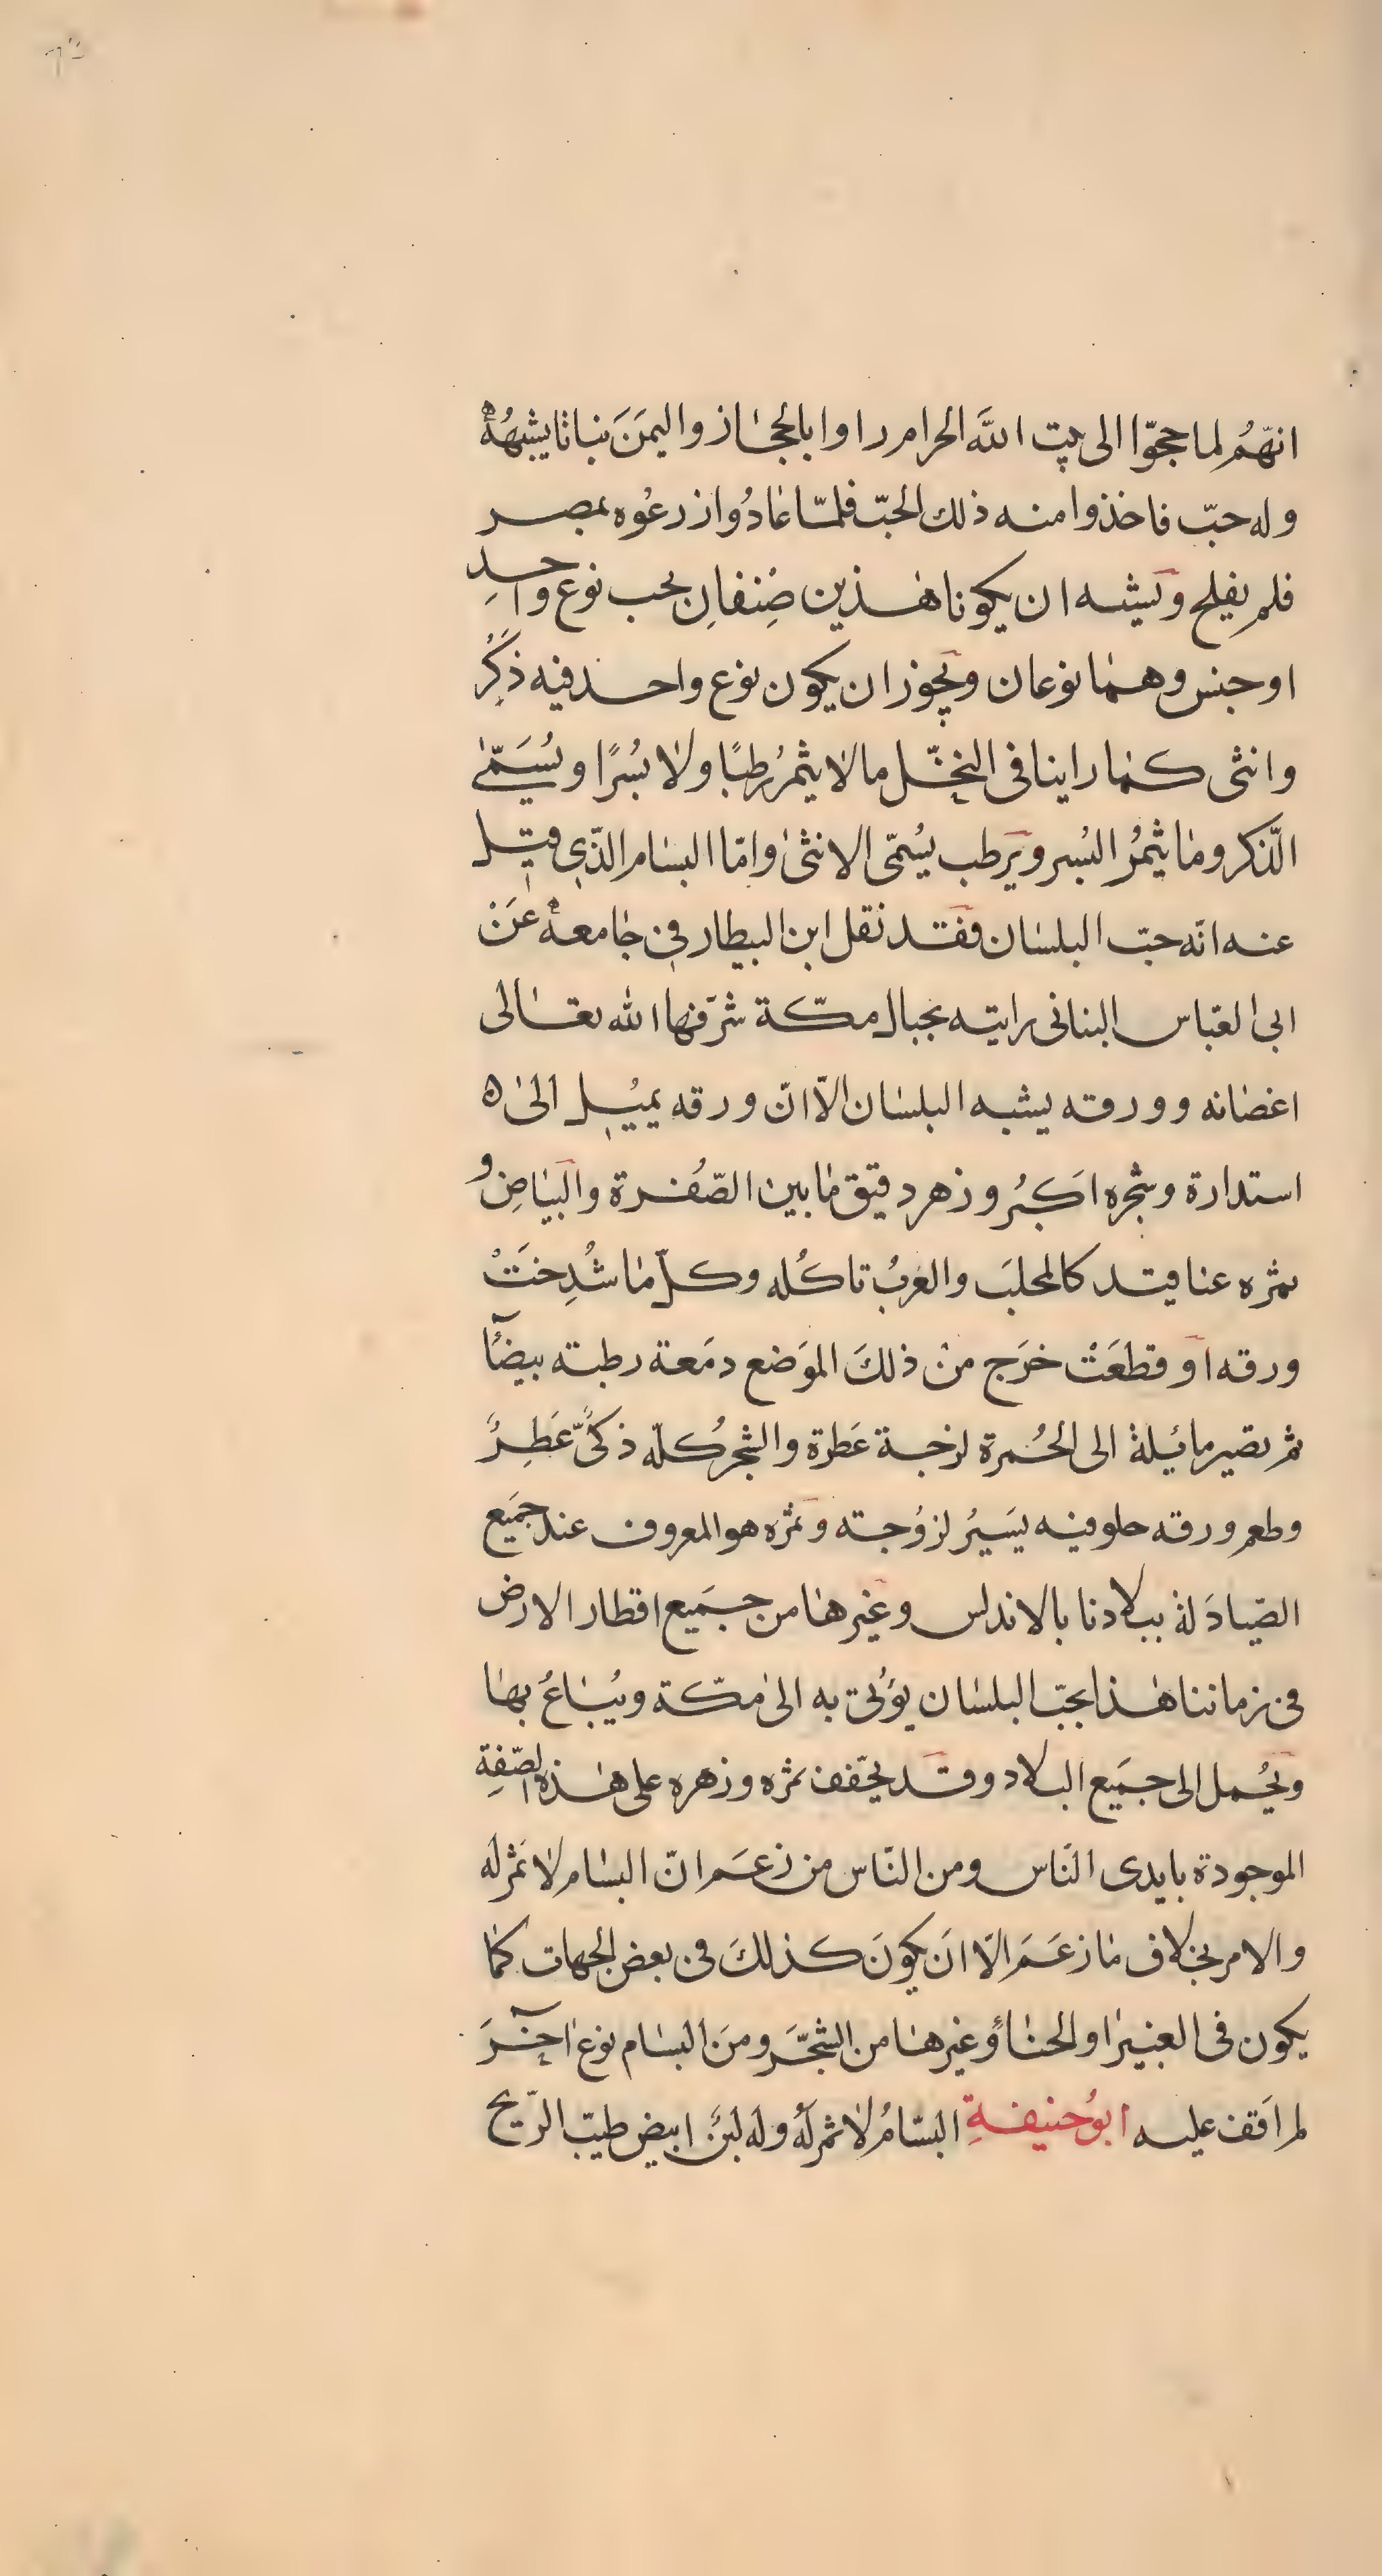 انهّمُ لما حجوّا الى بيت اللَّه الحرام راوا بالحجاز واليمَنَ نباتا يشبههُ
وله حبّ فاخذوا منه ذلك الحبّ فلمّا عادُوا زرعُوه بمصر
فلم يفلح ويشبه ان يكونا هذين صِنفانِ بحب نوع واحدِ
او جنس وهما نوعان ويجوز ان يكون نوع واحد فيه ذكَرُ
وانثى كما راينا فى النخّل ما لا يثمرُ رطبًا ولا بُسرًا ويُسَمّى
الذّكر وما يثمرُ البُسر ويرطب يُسمّى الانثى وامّا البسام الذّى قيل
عنه انّه حبّ البلسان فقد نقل ابن البيطار فى جامعهُ عَنْ
ابى العبّاس البناتى رايته بجبال مكّة شرّفها الله تعالى
اغصانه وورقه يشبه البلسان الاّ انّ ورقه يميُل الى ه
استدارة وشجره اكبَرُ وزهر دقيق ما بين الصّفُرة والبيَاضِ وُ
ثمره عناقيد كالمحلبَ والغربُ تاكُله وكلّ ما شُدِختْ
ورقه او قطعَتْ خرَج منْ ذلكَ الموَضع دمَعة رطبته بيضآً
ثم تصير مائيلة الى الحُمرة لزجة عَطرة والشجرُ كلّه ذكىًّ عَطِرً
وطعم ورقه حلو فيه يسَيرُ لزوُجته وثمره هو المعروف عند جميَع
الصّيادَلة ببلادنا بالاندلس وغيرها من جميَع اقطار الارض
فى زماننا هذا بحبّ البلسان يؤتى به الى مكّة ويُباعُ بها
ويحُمل الى جميَع البلاد وقد يجّفف ثمره وزهره على هذه الصّفِة
الموجودة بايدى النّاس ومن النّاس من زعَم انّ البسام لا ثمَر له
والامر بخلاف ما زعَمَ الاّ انَ يكونَ كذلكَ فى بعض الجهات كما
يكون فى الغبيرا والحناءً وغيرها من الشجّرَ ومنَ البسام نوع اخَرَ
لم اقَف عليه ابوُ حنيفةِ البسّامُ لا ثمر لهُ وله لبَنُ ابيض طيبّ الرّيح